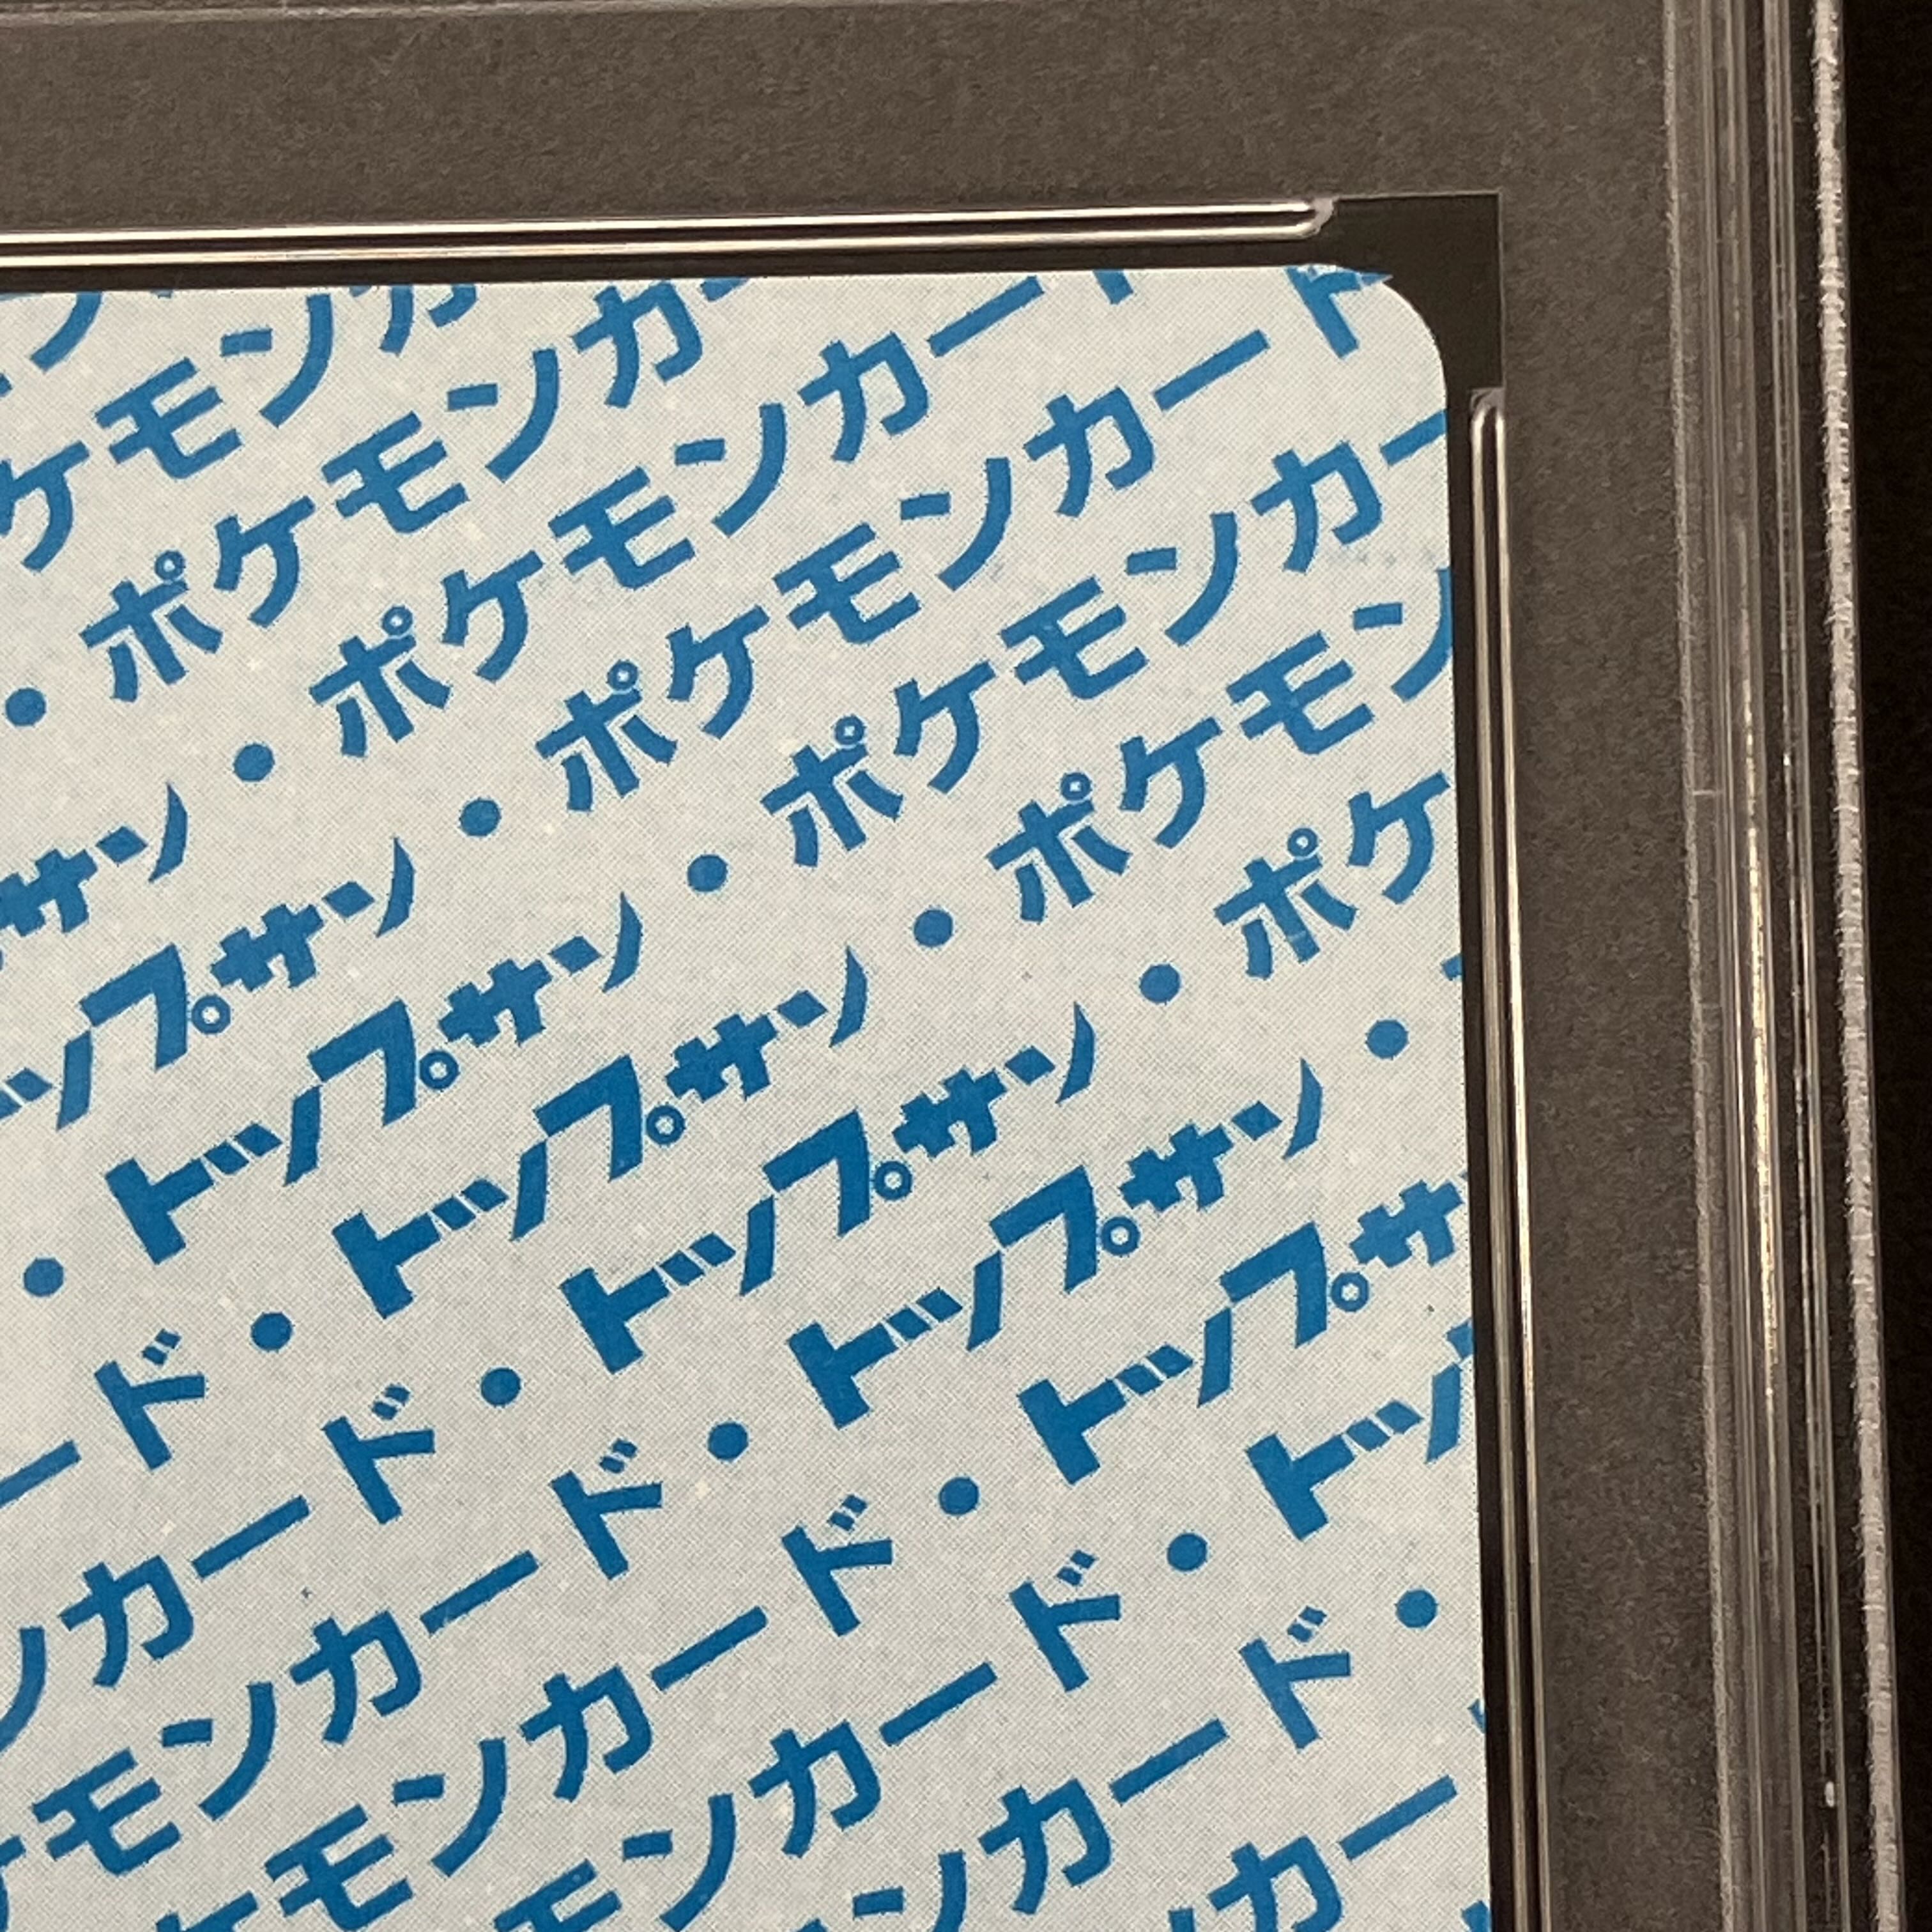 ケモンカ
・ポケモンカー
サン・ポケモンカード
ップサン・ポケモンカード
・トップサン・ポケモンカー
ード・トップサン・ポケモン
ンカード・トップサン・ポケ
モンカード・トップサン・
ケモンカード・トップサ
モンカード・トッ
ンカード・
カー